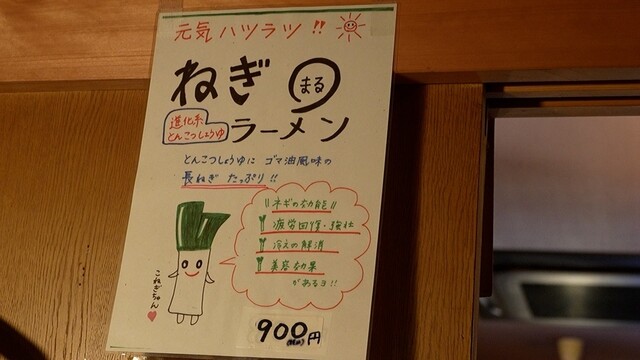 元気ハツラツ!!
ねぎ まる
進化系
とんこつしょうゆ
ラーメン
とんこつしょうゆに ゴマ油風味の
長ねぎ たっぷり!!
"ネギの効能"
疲労回復・強壮
冷えの解消
美容効果
があるヨ!!
こねぎちゃん
900円
(税込)